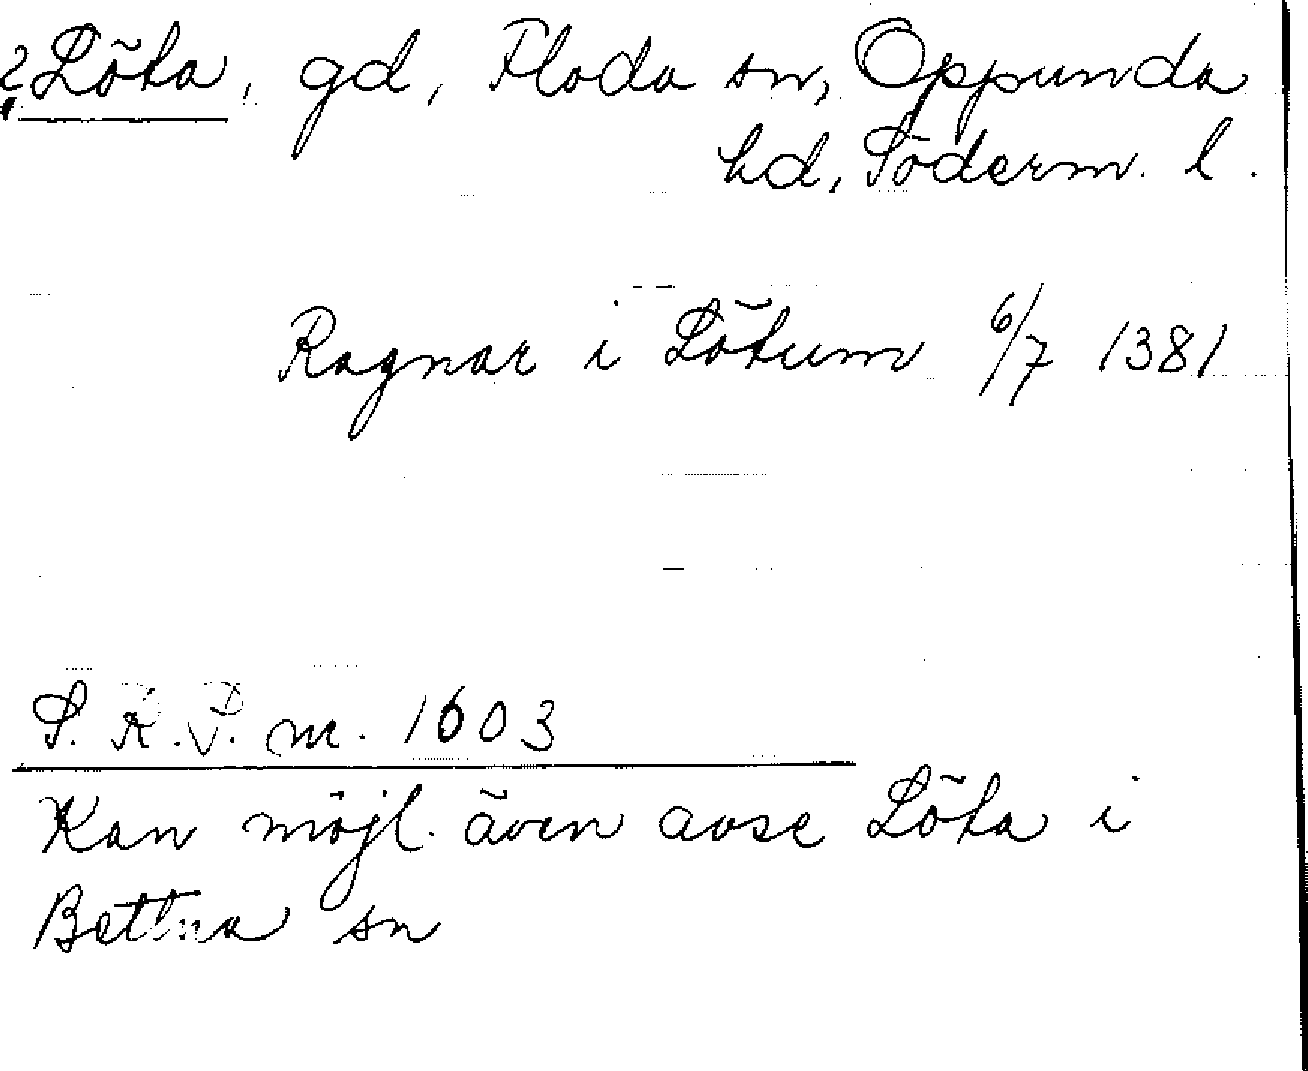 ? Löta, gd, Floda sn, Oppunda
hd, Söderm. l.
Ragnar i Lötum 6/7 1381
S. R. P. nr. 1603
Kan möjl. även avse Löta i
Bettna sn